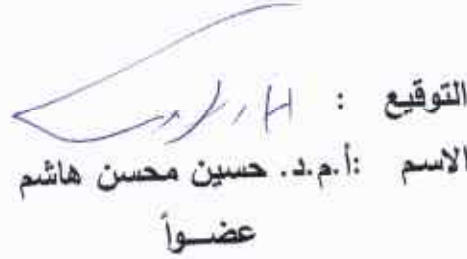 التوقيع :
الاسم :أ.م.د. حسين محسن هاشم
عضـــواً